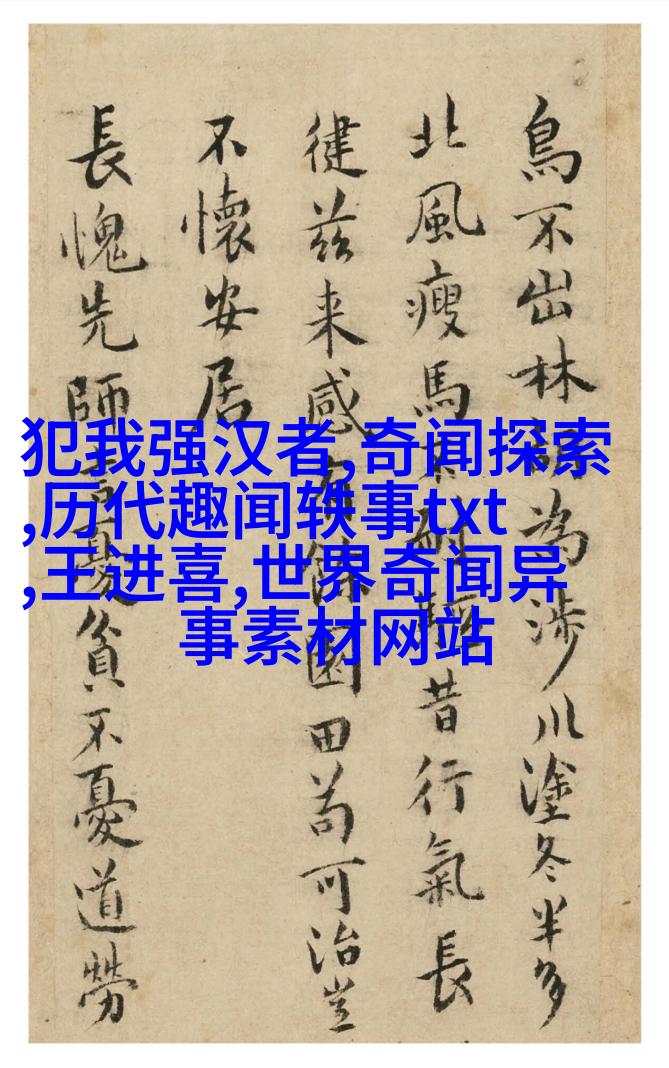 鳥不出林為涉川塗冬半多
北風瘦馬昔行氣長
徤茲来感園田苟可治豈
不懷安居
長愧先師貧不憂道勞
犯我强汉者,奇闻探索
,历代趣闻轶事txt
,王进喜,世界奇闻异
事素材网站